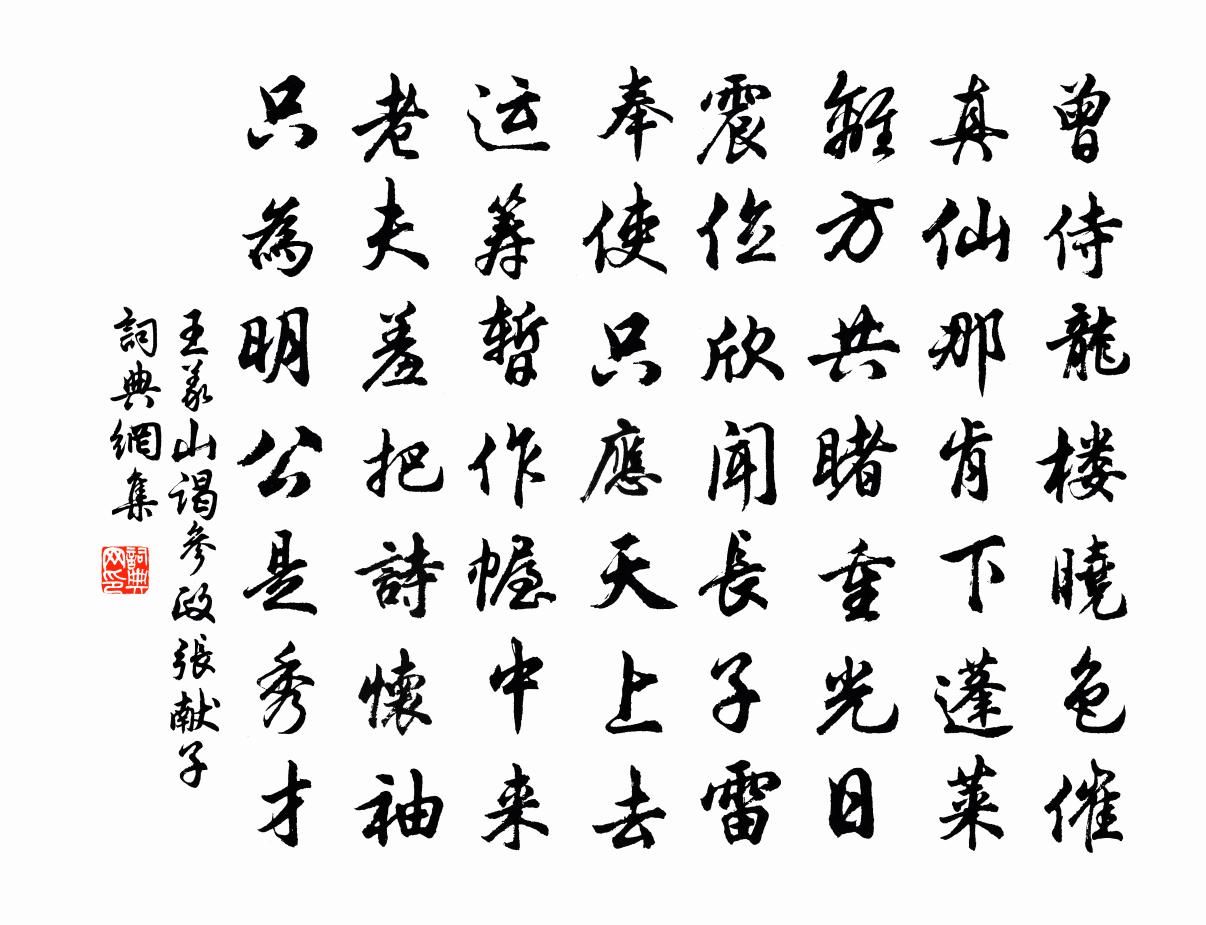 曾侍龍楼曉色催
真仙那肯下蓬莱
離方共睹重光日
震位欣聞長子雷
奉使只應天上去
运筹暫作幄中来
老夫羞把詩懷袖
只為明公是秀才
王义山谒參政張献子
詞典網集
詞典网印